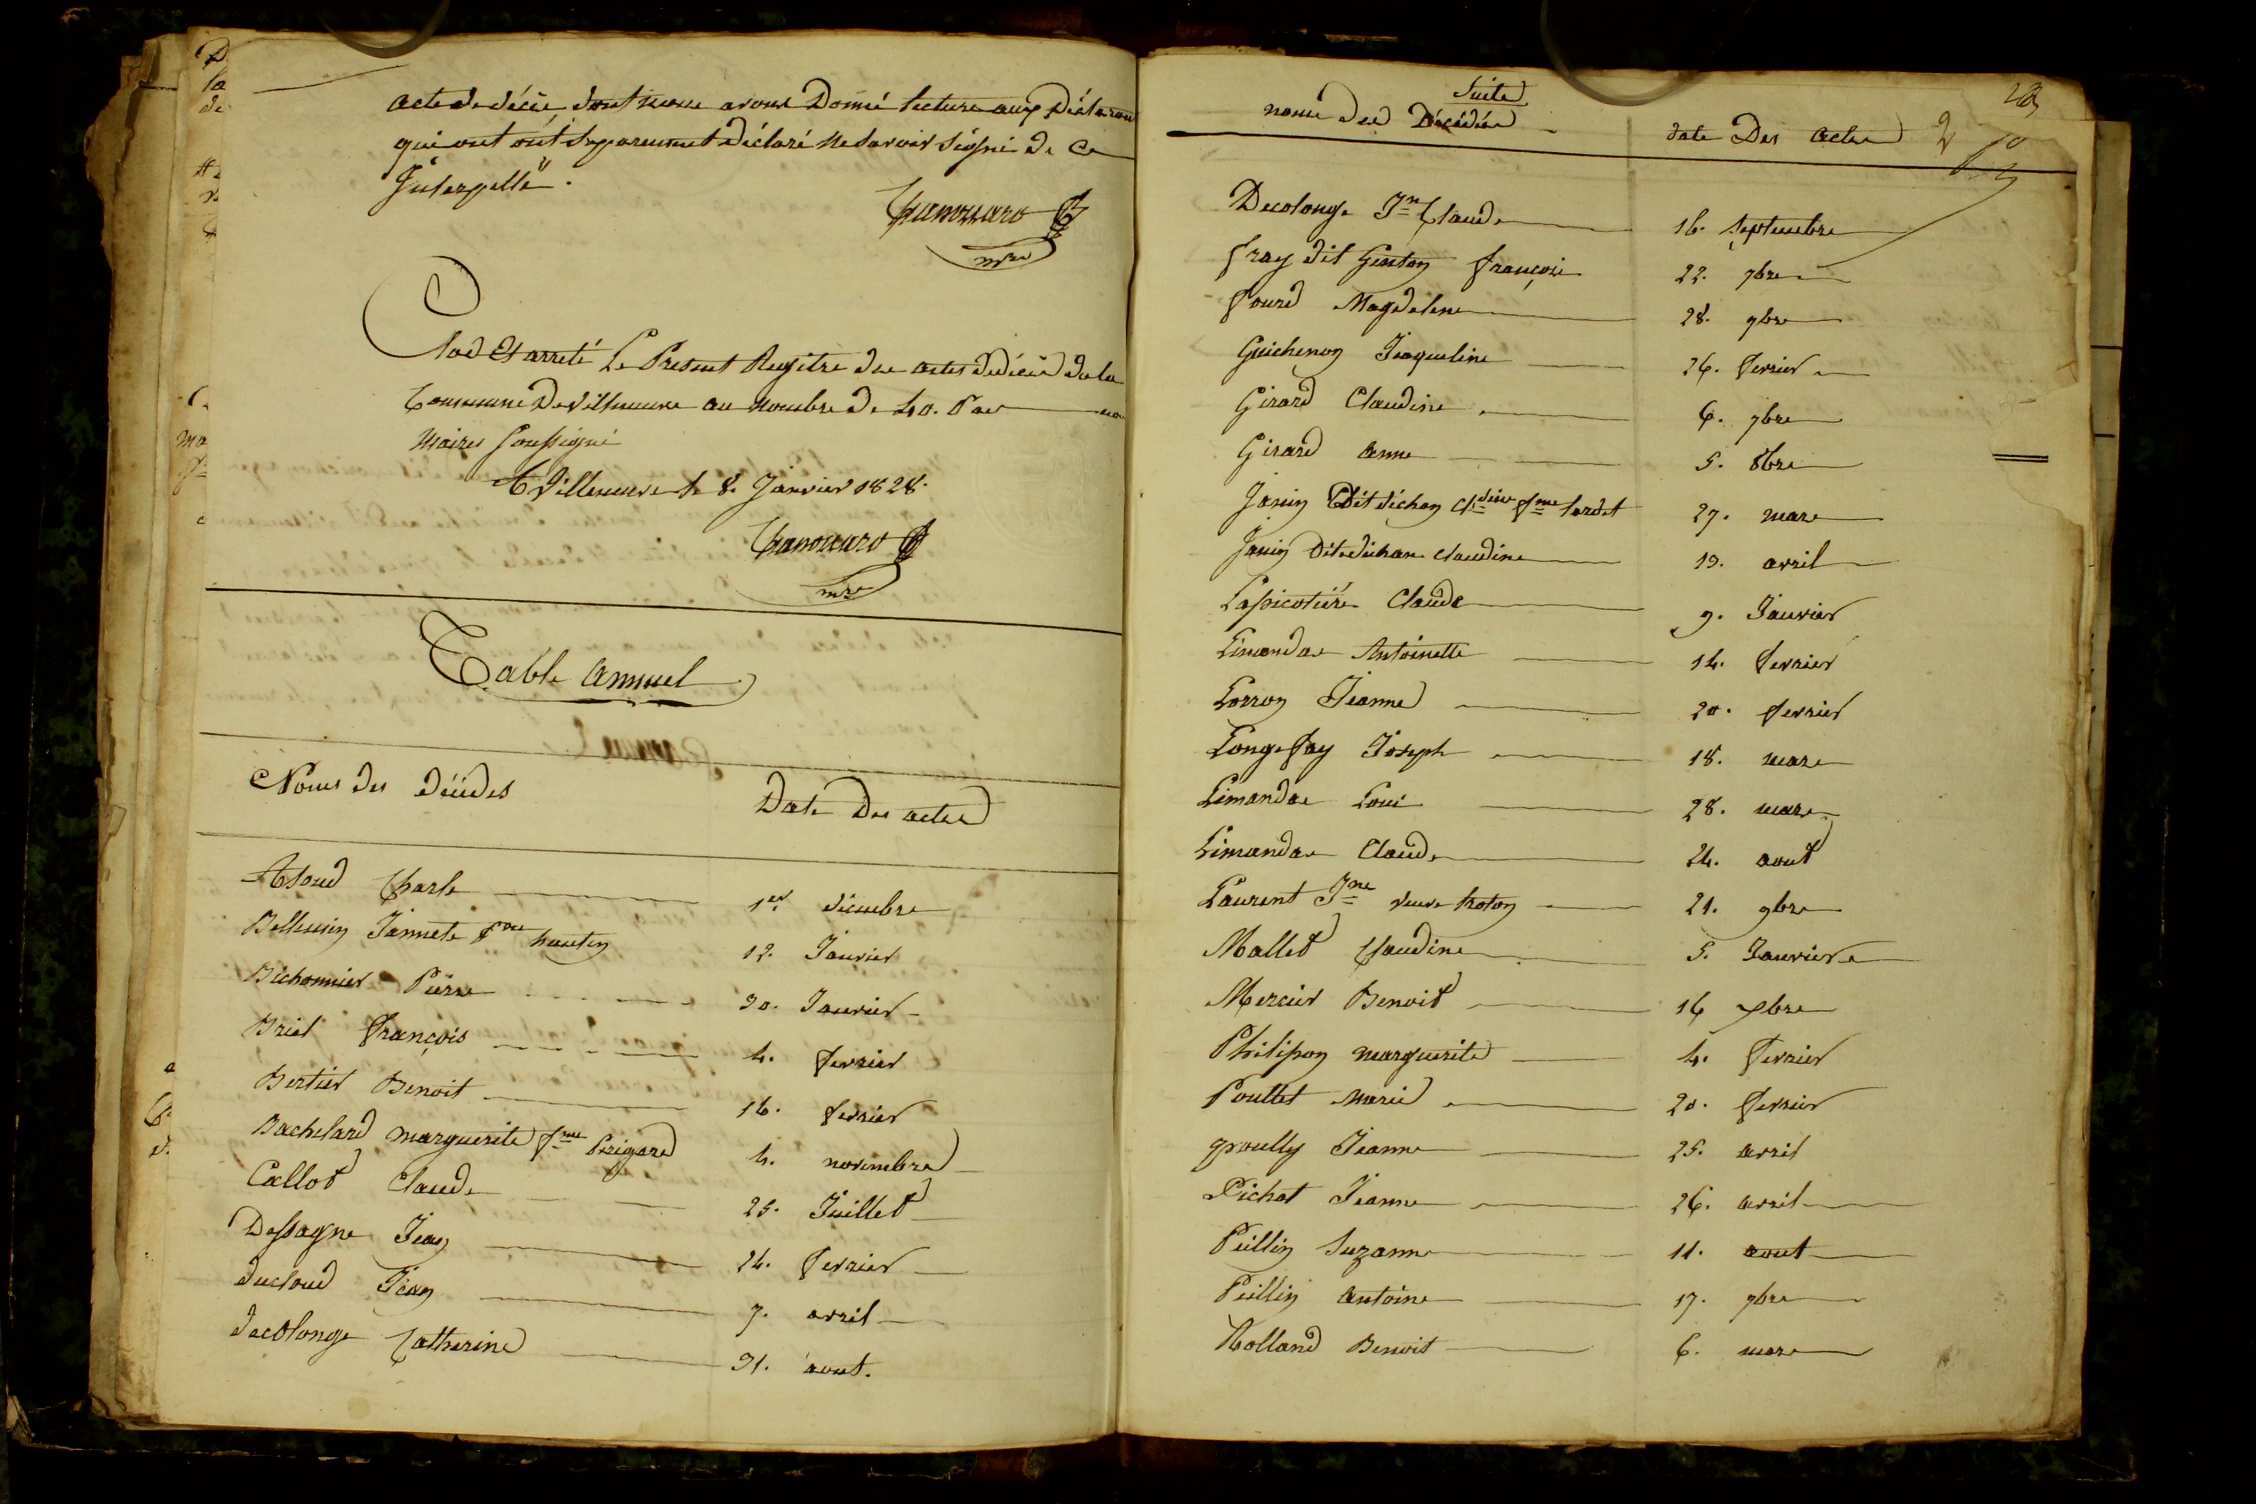 acte de décès, dont nous avons Donné lecture aux Déclarans
qui ont séparement déclaré ne savoir signé de ce
Interpellé".
mre
Clos et arreté Le Present Registre des actes de décès de la
Commune de Villeneuve au nombre de 40. Par nous
Maire soussigné
A Villeneuve le 8. Janvier 1828.
mre
Table annuel
Noms des décédés Date Des actes
Charle 1er décembre
Jannete fme 12. Janvier
Bichonnier Pierre 30. Janvier
Briel françois 4. fevrier
Bertier Benoit 16. fevrier
Bachelard marguerite fme Perigard 4. novembre
Callot Claude 25. Juillet
Dessagne Jean 24. fevrier
ducloud Jean 7. avril
decolonge Catherine 31. aout.
Suite
noms des Décédés date Des actes
Decolonge Jn Claude 16. septembre
fray dit Genton françois 22. 7bre
Magdelene 28. 9bre
Guichenon Jaqueline 26. fevrier
Girard Claudine 6. 9bre
Girard anne 5. 8bre
Janin Dit dichon fme 27. mars
Janin Claudine 19. avril
Lapicotiére Claude 9. Janvier
Limandas Antoinette 14. fevrier
Lorron Jeanne 20. fevrier
Longefay Joseph 18. mars
Limandas Loui 28. mars
Limandas Claude 24. aout
Laurent Jne veuve 21. 9bre
Mallet Claudine 5. Janvier
Mercier Benoit 16
Philipon marguerite 4. fevrier
Poullet marie 20. fevrier
Jeanne 25. avril
Pichat Jeanne 26. avril
Peillin Suzanne 11. aout
Peillin antoine 17. 7bre
Rolland Benoit 6. mars